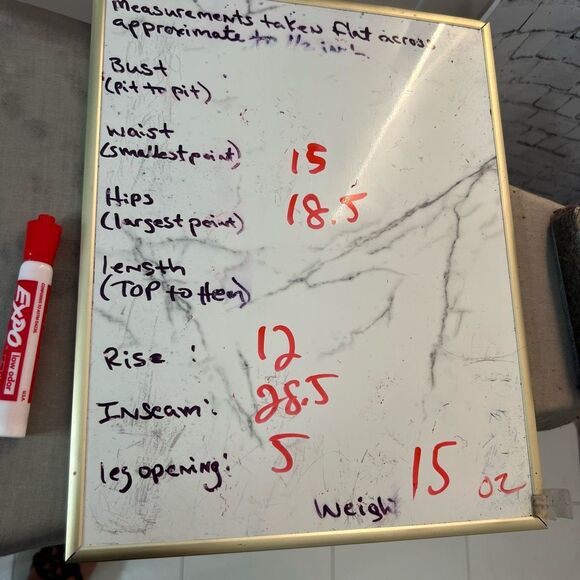 Measurements taken flat across
approximate
Bust
(pit to pit)
waist
(smallest point)
15
Hips
(largest point)
18.5
length
(TOP to Hem)
Rise :
12
Inseam:
28.5
leg opening:
5
15 oz
Weigh
EXPO
low odor